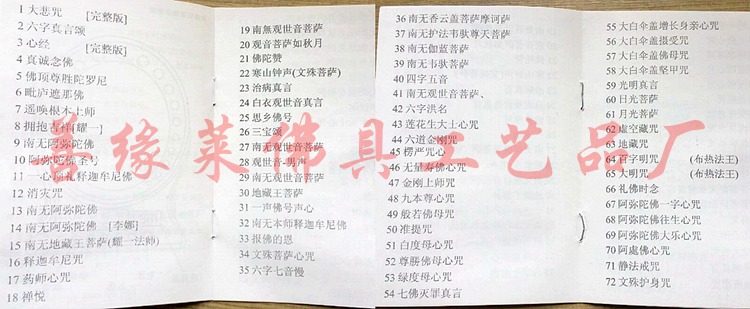 1 大悲咒 [完整版]
2 六字真言颂
3 心经 [完整版]
4 真诚念佛
5 佛顶尊胜陀罗尼
6 毗庐遮那佛
7 遥唤根本上师
8 拥抱吉祥[耀一]
9 南无阿弥陀佛
10 阿弥陀佛圣号
11 一心顶礼释迦牟尼佛
12 消灾咒
13 南无阿弥陀佛
14 南无阿弥陀佛 [李娜]
15 南无地藏王菩萨(耀一法师)
16 释迦牟尼咒
17 药师心咒
18 禅悦
19 南無观世音菩萨
20 观音菩萨如秋月
21 佛陀赞
22 寒山钟声(文殊菩萨)
23 治病真言
24 白衣观世音真言
25 思乡佛号
26 三宝颂
27 南无观世音菩萨
28 观世音-男声
29 南无观世音菩萨
30 地藏王菩萨
31 一声佛号声心
32 南无本师释迦牟尼佛
33 报佛的恩
34 文殊菩萨心咒
35 六字七音慢
36 南无香云盖菩萨摩诃萨
37 南无护法韦驮尊天菩萨
38 南无伽蓝菩萨
39 南无韦驮菩萨
40 四字五音
41 南无观世音菩萨、
42 六字洪名
43 莲花生大士心咒
44 六道金刚咒
45 楞严咒心
46 无量寿佛心咒
47 金刚上师咒
48 九本尊心咒
49 般若佛母咒
50 准提咒
51 白度母心咒
52 尊勝佛母心咒
53 绿度母心咒
54 七佛灭罪真言
55 大白伞盖增长身亲心咒
56 大白伞盖摄受咒
57 大白伞盖佛母咒
58 大白伞盖坚甲咒
59 光明真言
60 日光菩萨
61 月光菩萨
62 虚空藏咒
63 地藏咒
64 百字明咒 (布热法王)
65 大明咒 (布热法王)
66 礼佛时念
67 阿弥陀佛一字心咒
68 阿弥陀佛往生心咒
69 阿弥陀佛大乐心咒
70 阿處佛心咒
71 静法戒咒
72 文殊护身咒
善缘莱佛具工艺品厂